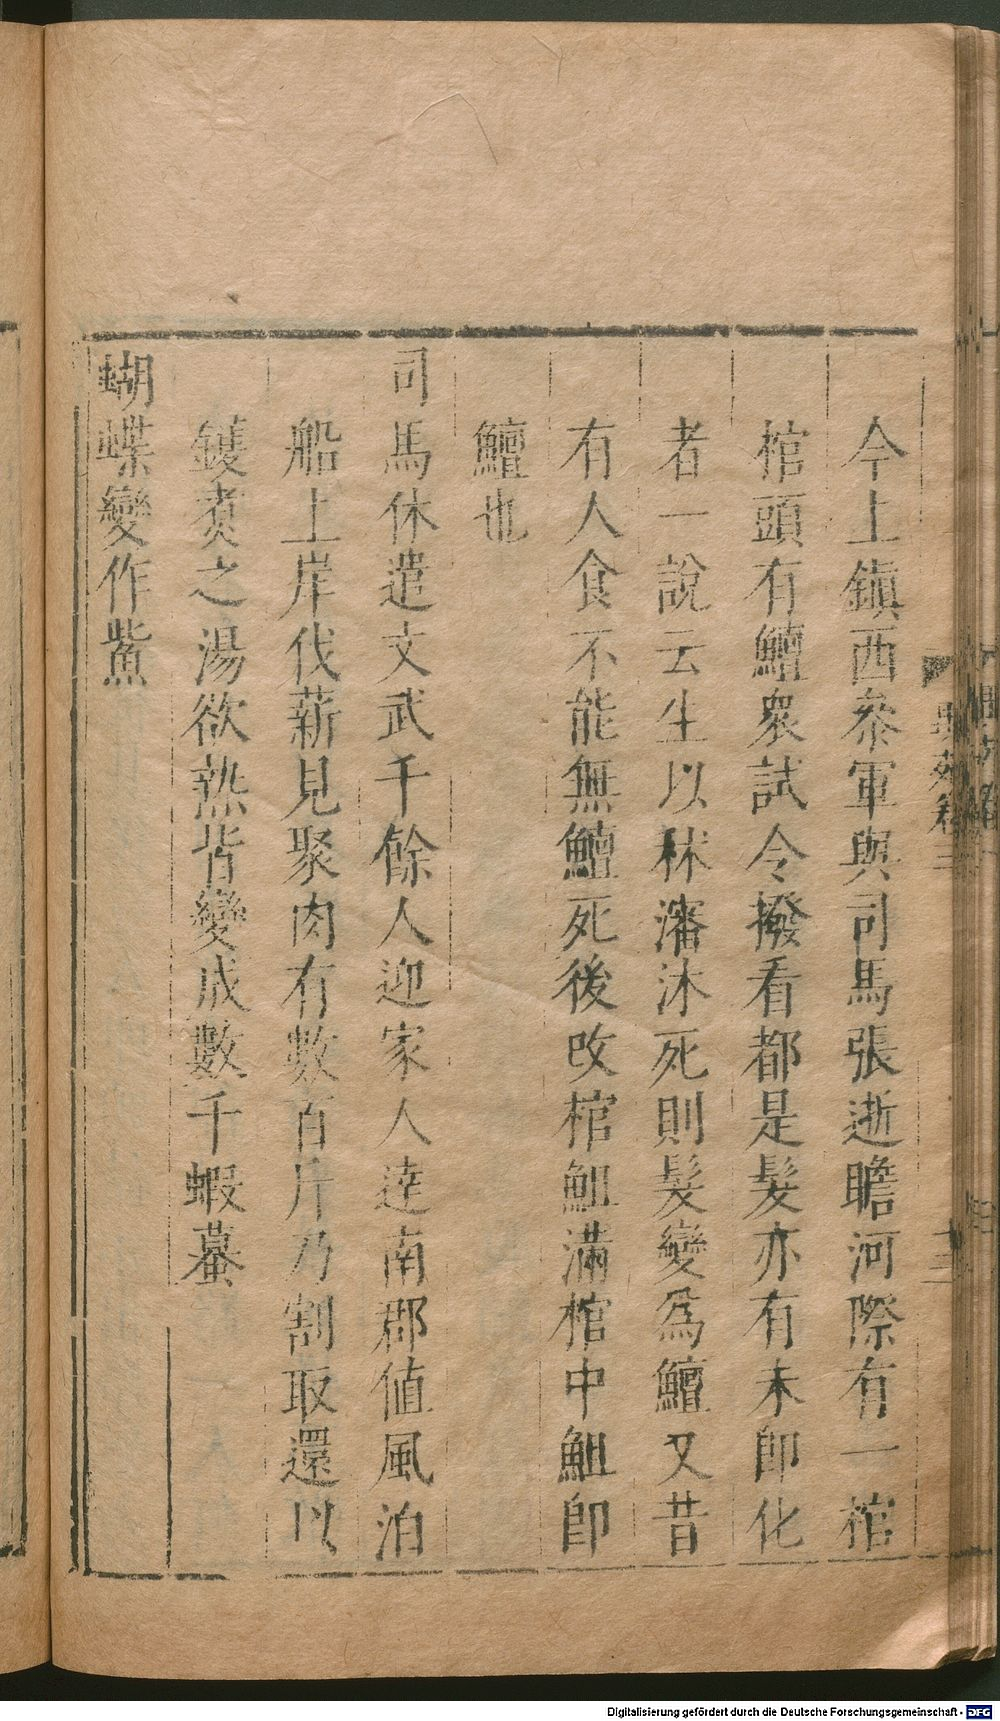 今上鎮西叅軍與司馬張逝瞻河際有一棺
棺頭有鱣衆試令撥看都是髮亦有未卽化
者一說云生以秫瀋沐死則髮變爲鱣又昔
有人食不能無鱣死後改棺䱉滿棺中䱉卽
鱣也
司馬休遣文武千餘人迎家人達南郡值風泊
船上岸伐薪見聚肉有數百斤乃割取還以
鑊煑之湯欲熟皆變成數千蝦蟇
蝴蝶變作鮆
Digitalisierung gefördert durch die Deutsche Forschungsgemeinschaft - DFG